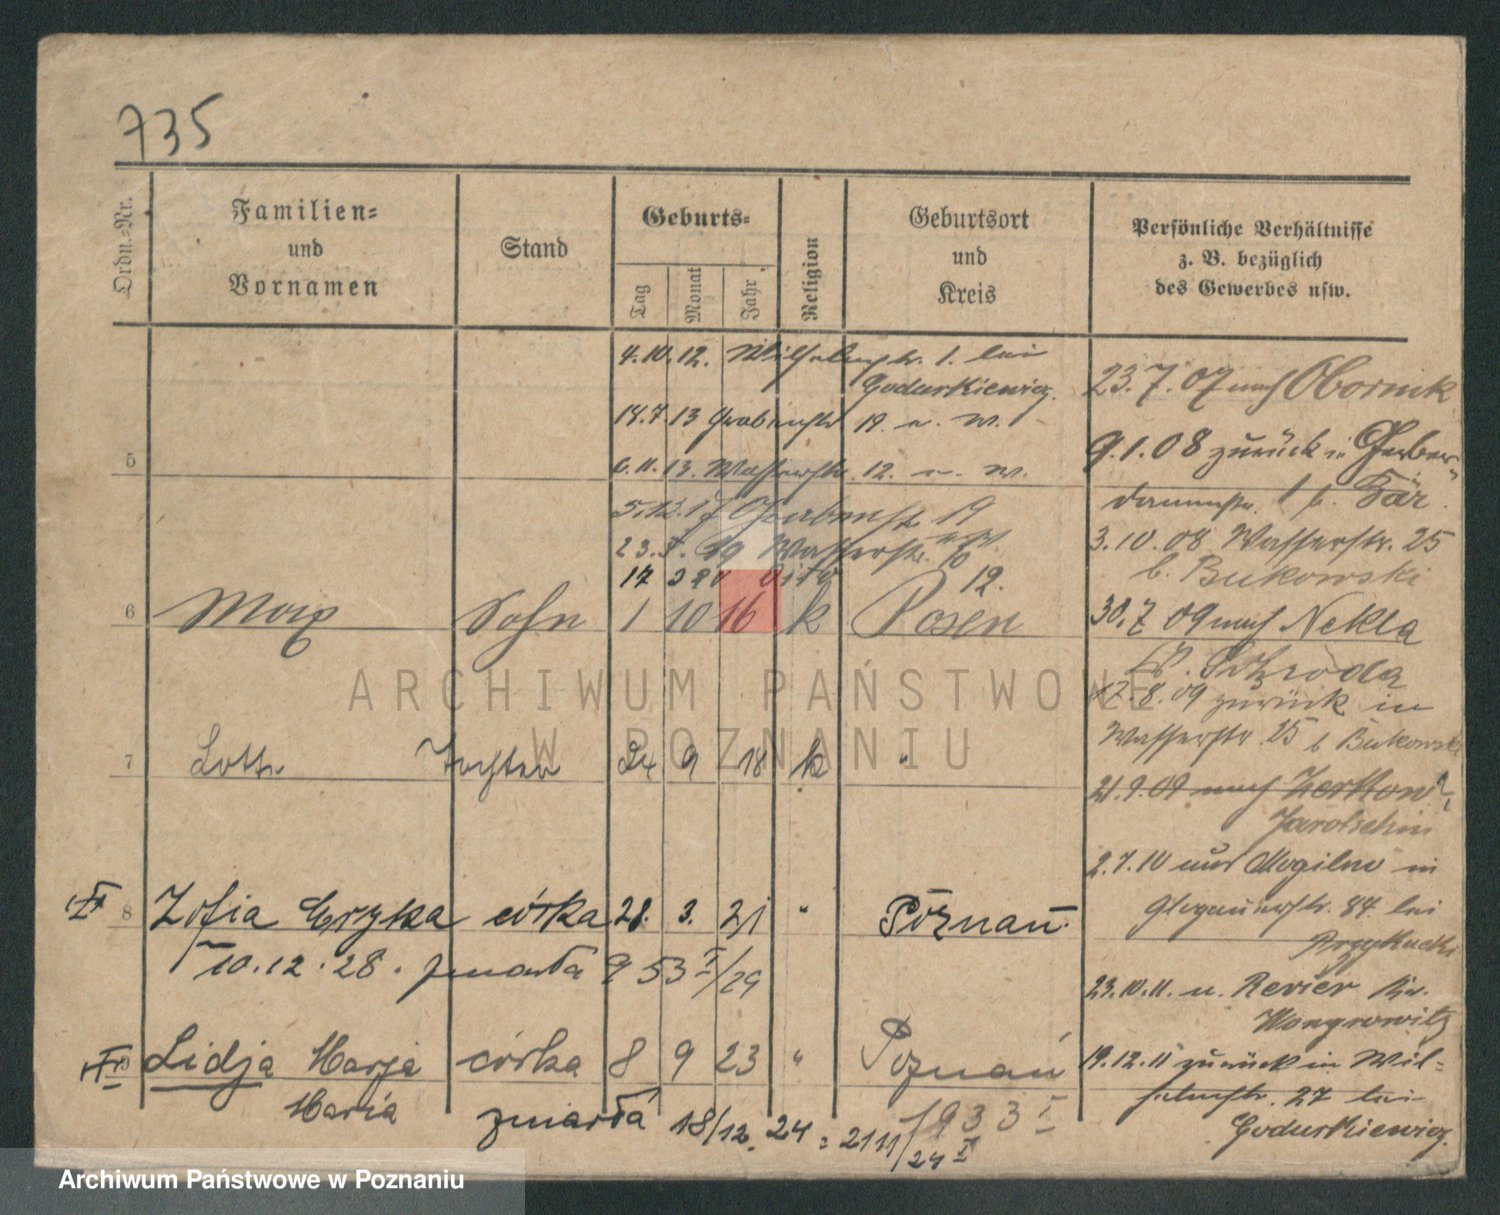 735
Ordn.-Nr.
Familien-
und
Vornamen
Stand
Geburts-
Tag
Monat
Jahr
Religion
Geburtsort
und
Kreis
Persönliche Verhältnisse
z. B. bezüglich
des Gewerbes usw.
4.10.12. Wilhelmstr. 1. bei
Godurkiewicz.
18.7.13 Grabenstr 19. u. W.
5
6.11.13. Wasserstr. 12. u. W.
5.12.17 Grabenstr 19
23.7.19 Wasserstr.
12.
6 Max Sohn 1 10 16 k Posen
7 Tochter 24 9 18 k "
8 Zofia Eryka córka 28. 3. 21 " Poznań.
10.12.28. zmarła 953 I/29
9 Lidja Marja córka 8 9 23 " Poznań
Maria zmarła 18/12. 24 = 2111/24 I
1933 I
23.7.07 nach Obornik
9.1.08 zurück in Gerber-
dammstr. 1 b. Bär.
3.10.08 Wasserstr. 25
b. Bukowski
30.7 09 nach Nekla
Kr. Schroda
17.8.09 zurück in
Wasserstr. 25 b Bukowski
21.9.09 nach Zerkow
Jarotschin
2.7.10 aus Mogilno in
Glogauerstr. 84 bei
23.10.11. n. Revier Kr.
Wongrowitz
19.12.11 zurück in Wil-
helmstr. 27 bei
Godurkiewicz.
ARCHIWUM PAŃSTWOWE
W POZNANIU
Archiwum Państwowe w Poznaniu